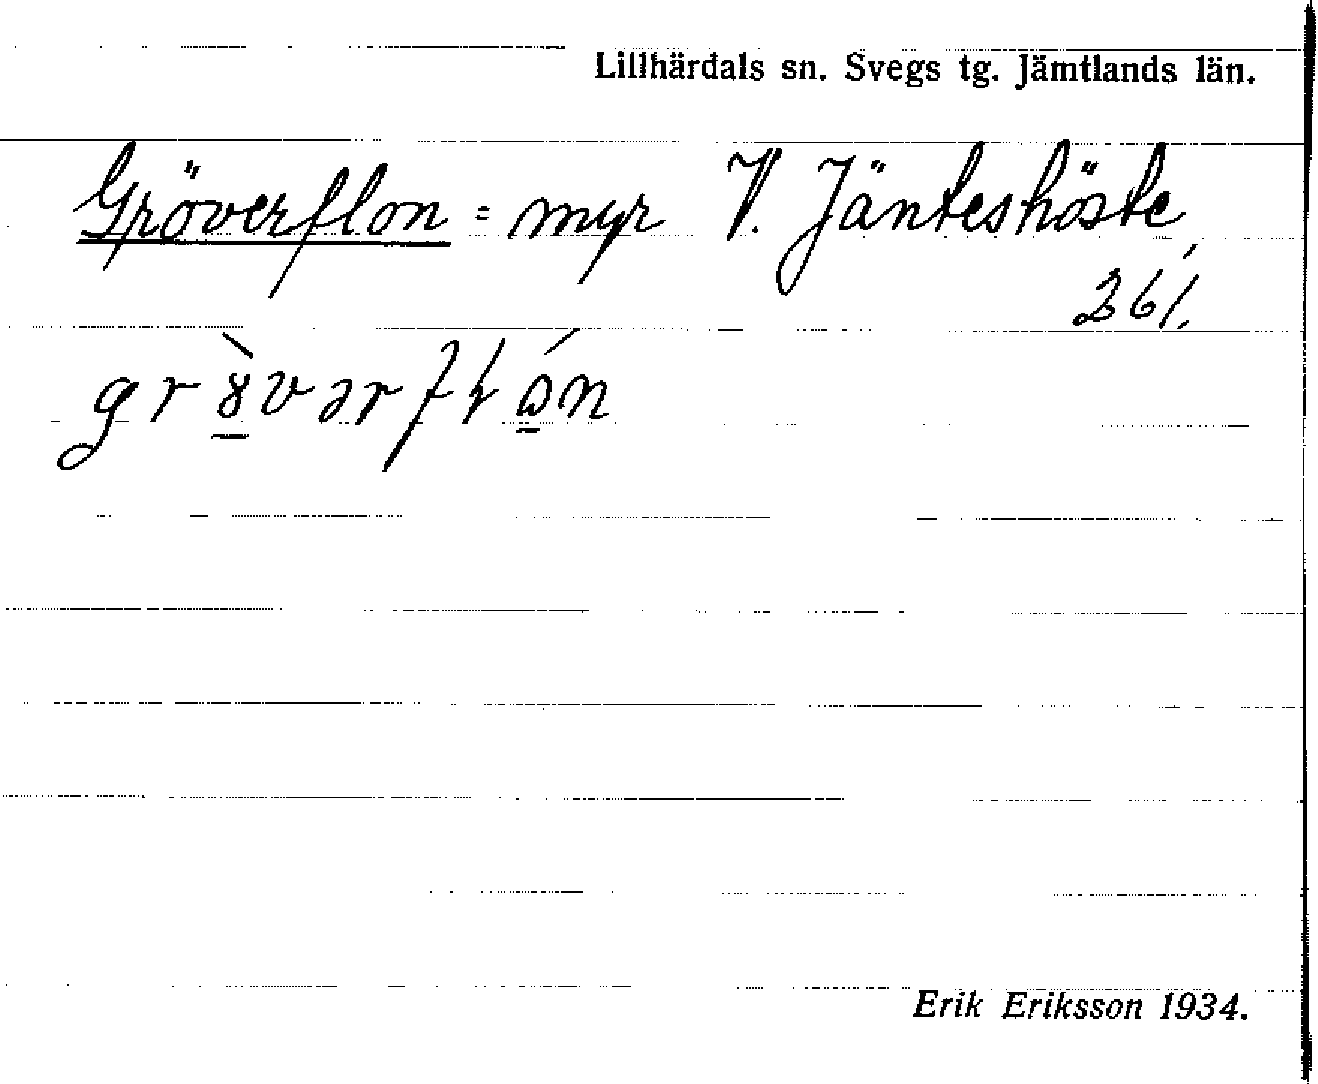 Lillhärdals sn. Svegs tg. Jämtlands län.
Gröverflon = myr V. Jänteshöste,
261.
Erik Eriksson 1934.